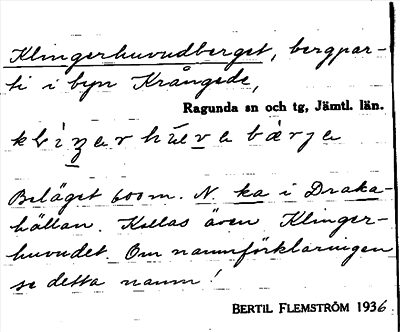 Klingerhuvudberget, bergpar-
ti i byn Krångede,
Ragunda sn och tg, Jämtl. län.
Beläget 600 m. N. ka i Draka-
hällan. Kallas även Klinger-
huvudet. Om namnförklaringen
se detta namn!
BERTIL FLEMSTRÖM 1936